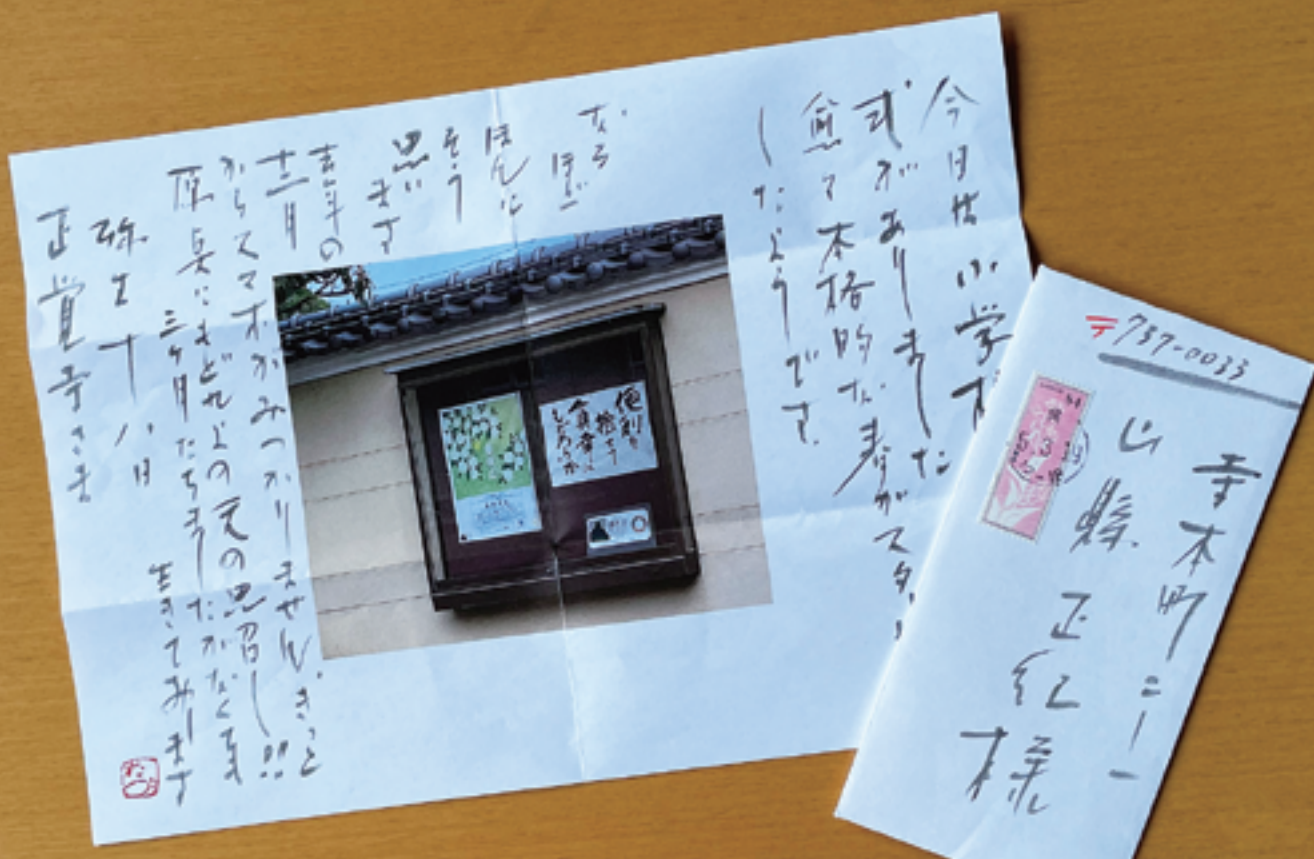 今日は小学校
式がありました
愈々本格的な春がスター
したようです。
なるほど
ほんに
そう
思い
ます
去年の
十二月
からスマホがみつかりませんきっと
原点にもどれよの天の思召し!!
三ヶ月たちましたがなくても
生きてみます
弥生十八日
正覚寺さま
便利を
〒737-0033
寺本町二ー一
山縣 正紅様